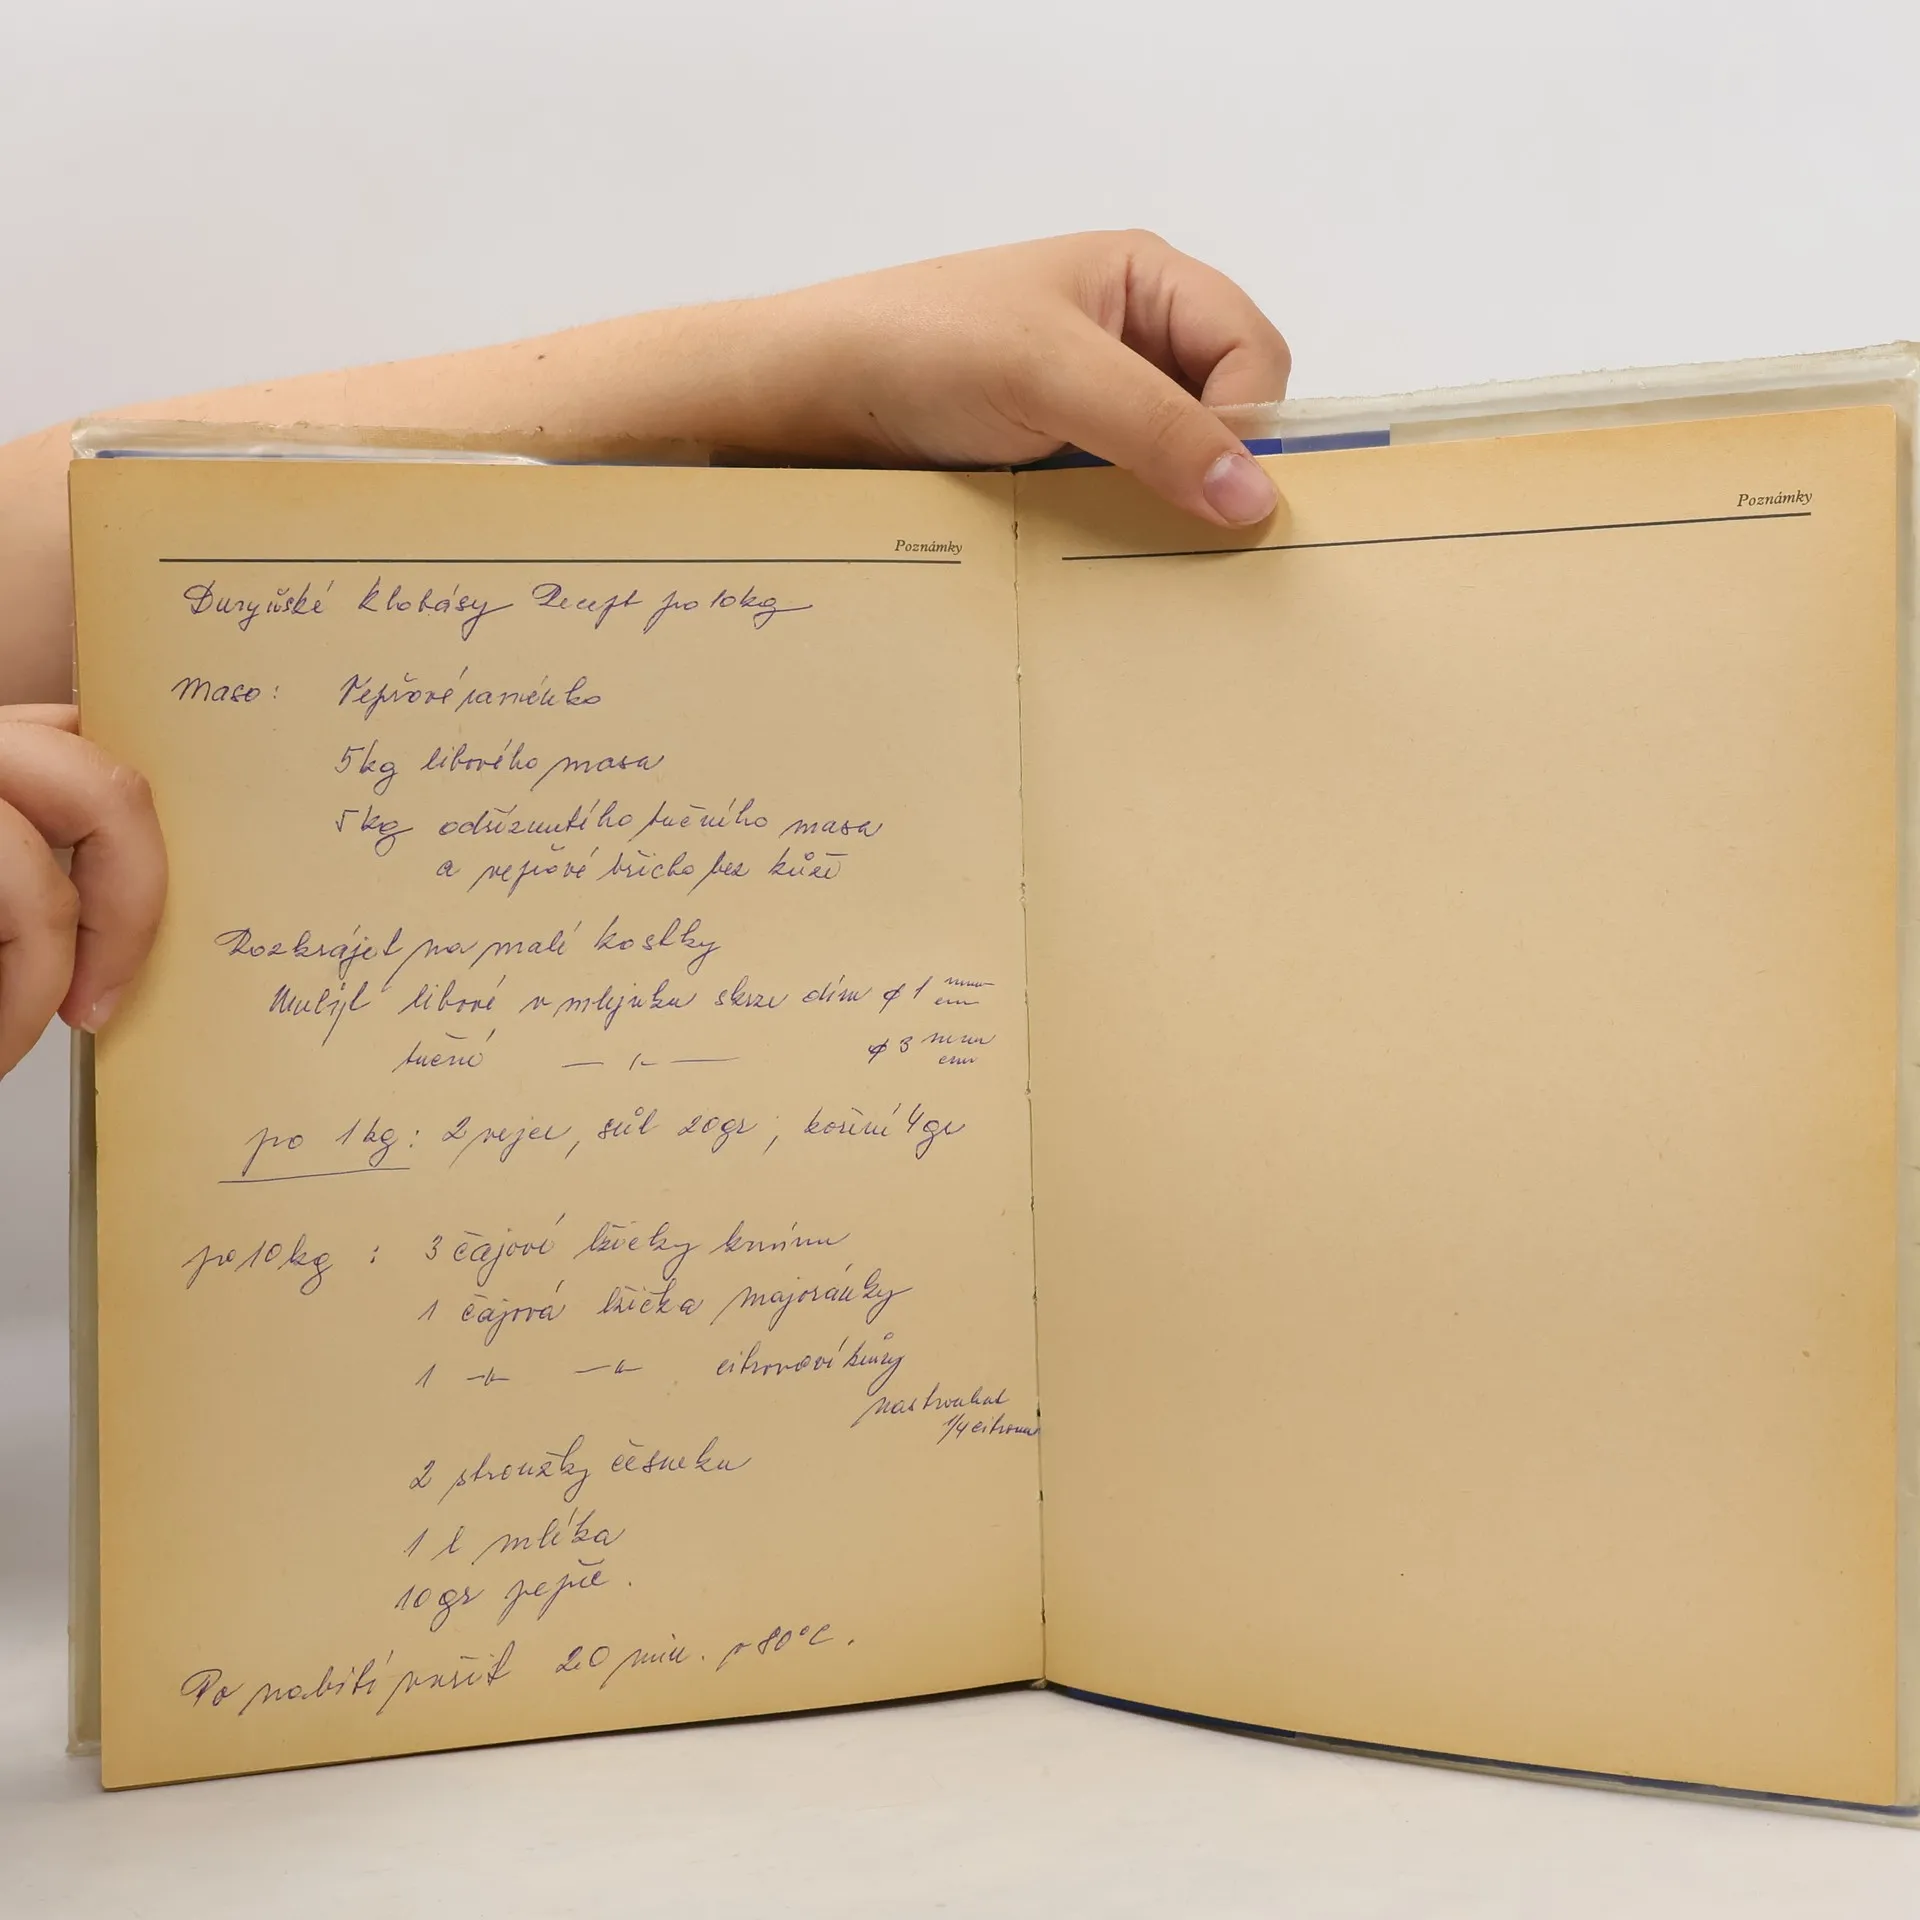 Poznámky
Duryňské klobásy Recept po 10kg
Maso: Vepřové raménko
5kg libového masa
5kg odříznutého tučného masa
a vepřové břicho bez kůže
Rozkrájet na malé kostky
Umlýt libové v mlejnku skrze díru ø 1 mm
cm
tučné — " — ø 3 mm
cm
po 1kg: 2 vejce, sůl 20gr, koření 4gr
po 10kg: 3 čajové lžičky kmínu
1 čajová lžička majoránky
1 -"- -"- citronové kůry
nastrouhat
1/4 citronu
2 stroužky česneku
1 l mléka
10gr pepře.
Po nabití vařit 20 min. v 80°C.
Poznámky